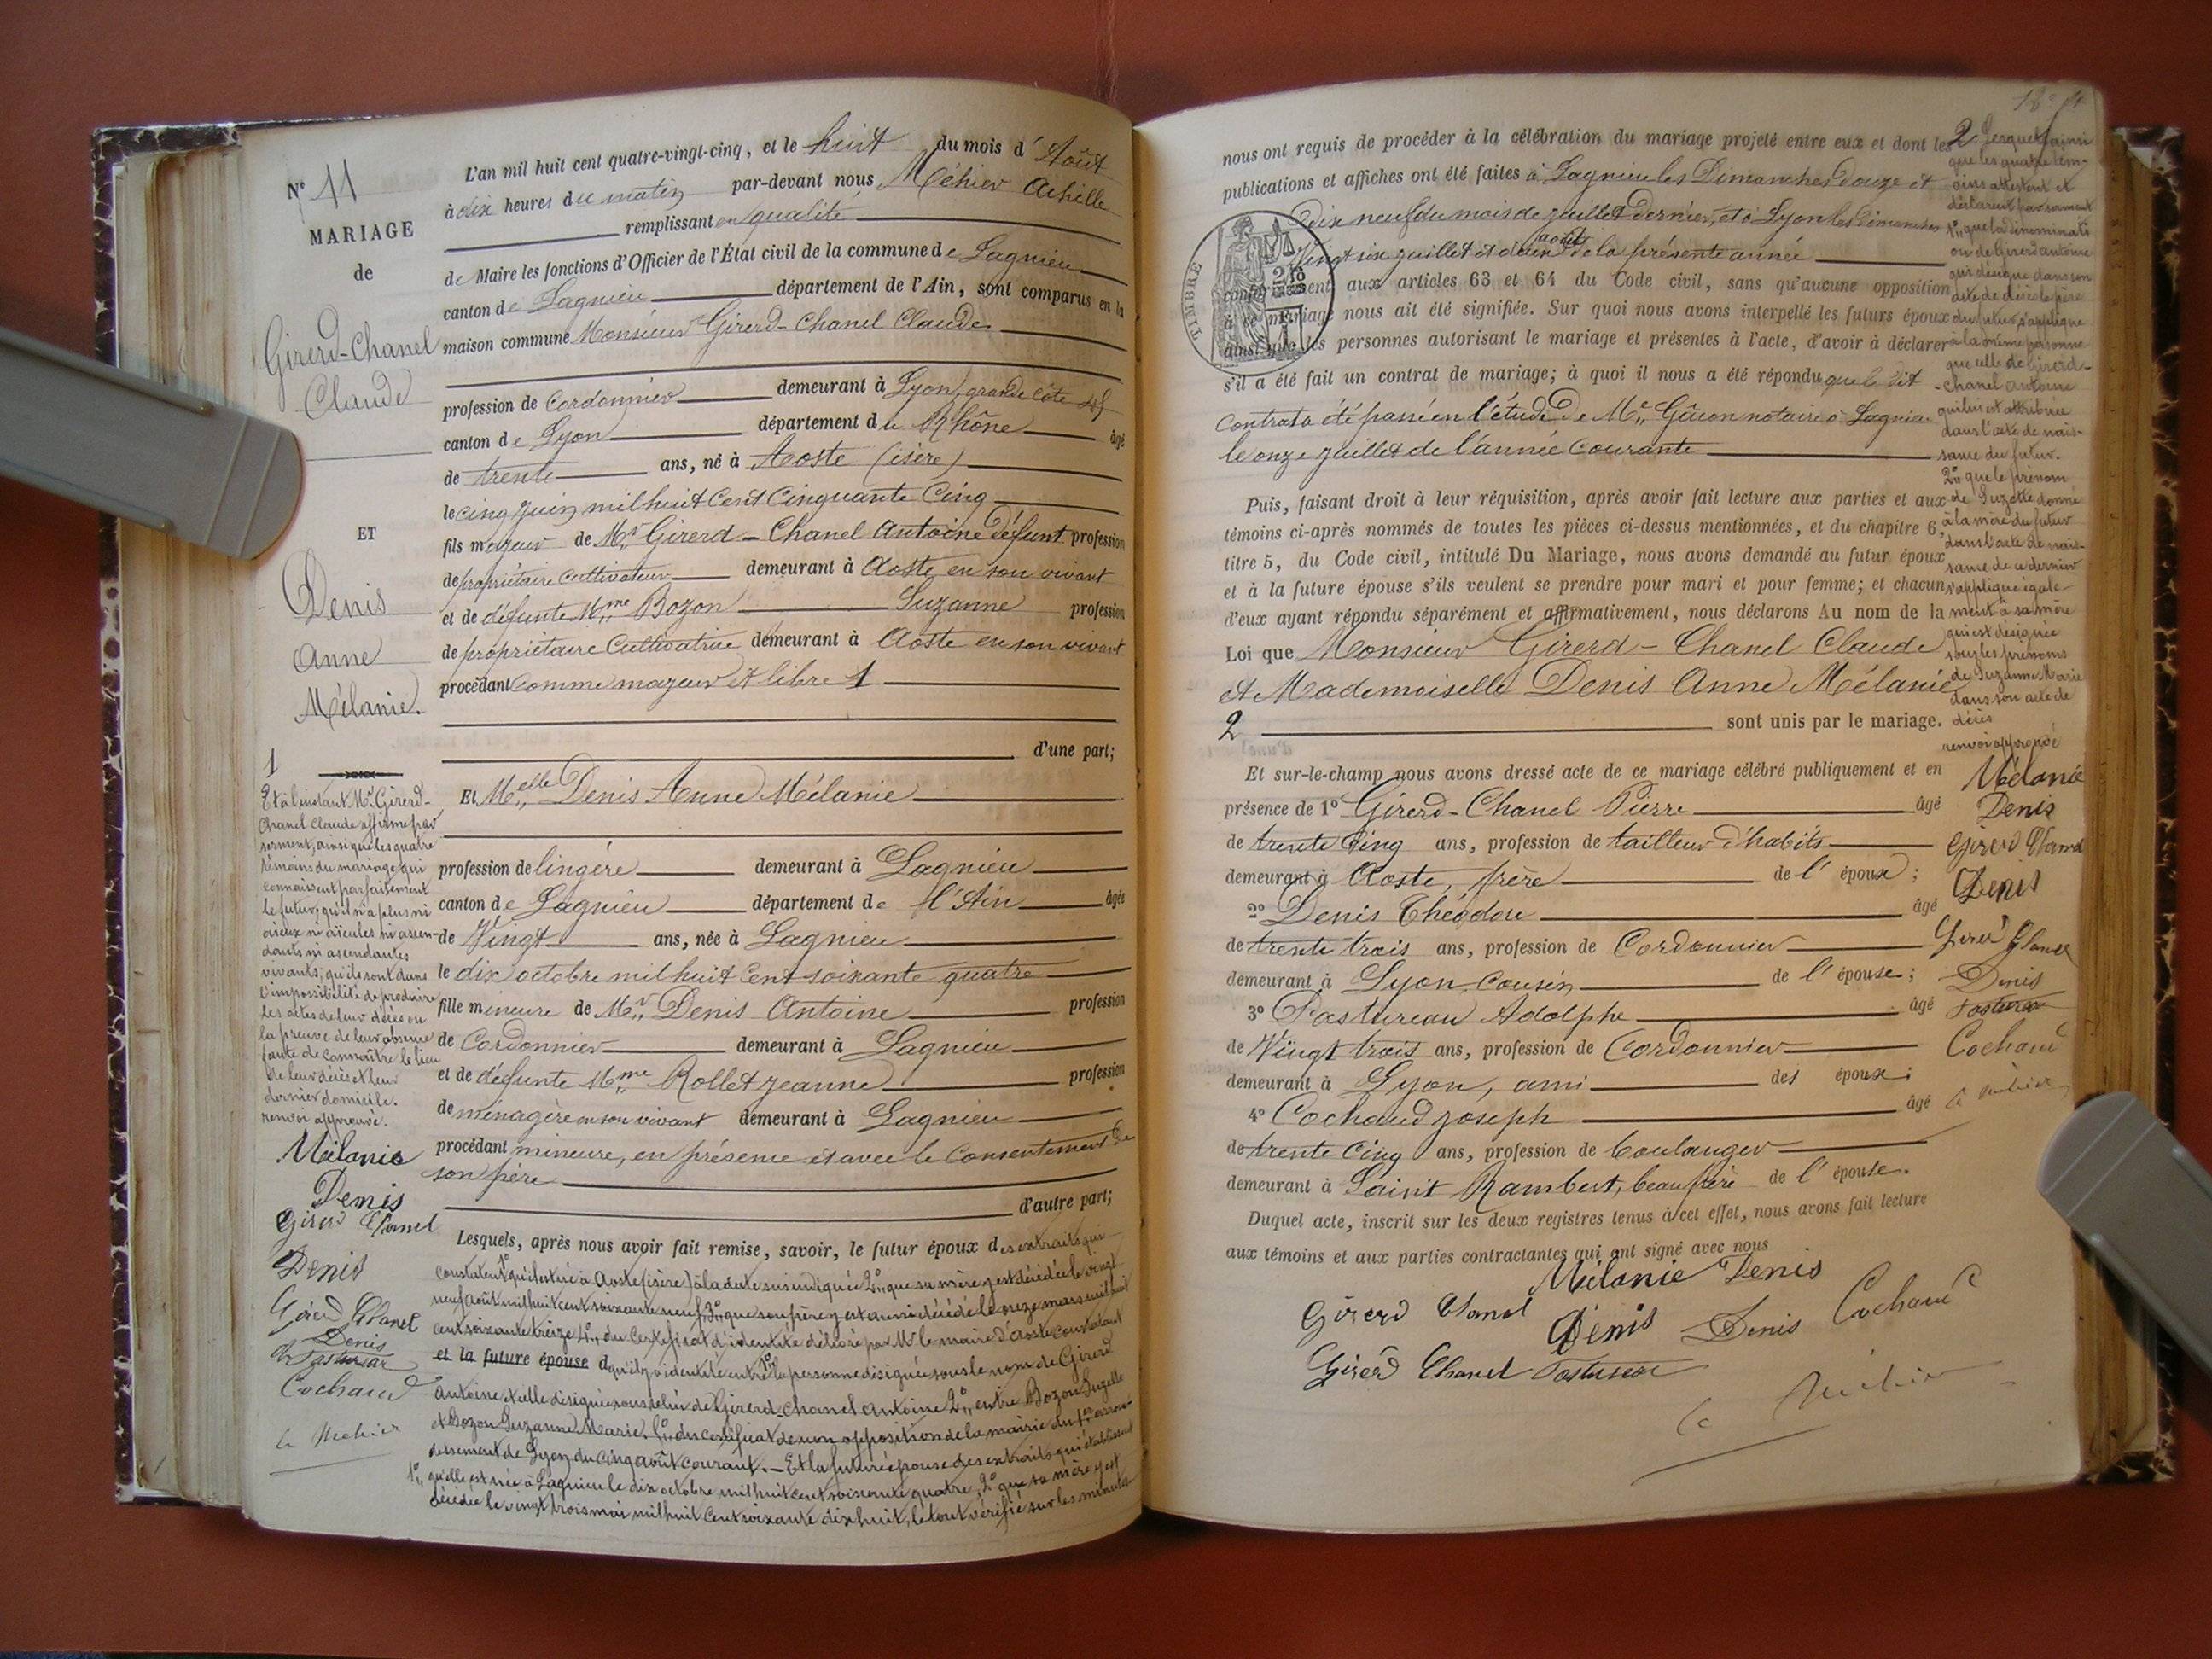 N° 11
MARIAGE
de
Girerd-Chanel
Claude
ET
Denis
Anne
Mélanie.
L'an mil huit cent quatre-vingt-cinq, et le huit du mois d'Août
à dix heures du matin par-devant nous Méhier Achille
remplissant en qualité
de Maire les fonctions d'Officier de l'État civil de la commune de Lagnieu
canton de Lagnieu département de l'Ain, sont comparus en la
maison commune Monsieur Girerd-Chanel Claude
profession de Cordonnier demeurant à Lyon, grande côte 45
canton de Lyon département du Rhône âgé
de trente ans, né à Aoste (isère)
le cinq juin mil huit Cent Cinquante Cinq
fils majeur de Mr Girerd-Chanel Antoine Défunt profession
de propriétaire Cultivateur demeurant à Aoste en son vivant
et de défunte Mme Bozon Suzanne profession
de propriétaire Cultivatrice demeurant à Aoste en son vivant
procédant comme majeur et libre 1
d'une part;
Et Melle Denis Anne Mélanie
profession de lingère demeurant à Lagnieu
canton de Lagnieu département de l'Ain âgée
de Vingt ans, née à Lagnieu
le dix octobre mil huit Cent soixante quatre
fille mineure de Mr Denis Antoine profession
de Cordonnier demeurant à Lagnieu
et de défunte Mme Rollet Jeanne profession
de ménagère en son vivant demeurant à Lagnieu
procédant mineure, en présence et avec le Consentement de
son père
d'autre part;
Lesquels, après nous avoir fait remise, savoir, le futur époux des extraits qui
constatent 1° qu'il est né à Aoste (isère) à la date susindiquée 2° que sa mère y est décédée le vingt
neuf août mil huit cent soixante neuf, 3° que son père y est aussi décédé le onze mars mil huit
cent soixante treize 4° du Certificat d'identité délivré par Mr le maire d'Aoste constatant
et la future épouse d qu'il y a identité entre 1° la personne désignée sous le nom de Girerd
Antoine et celle désignée sous celui de Girerd-Chanel Antoine 2° entre Bozon Suzette
et Bozon Suzanne Marie. 5° du certificat de non opposition de la mairie du 1er arron-
dissement de Lyon du cinq août courant. — Et la future épouse des extraits qui établissent
1° qu'elle est née à Lagnieu le dix octobre mil huit cent soixante quatre, 2° que sa mère y est
décédée le vingt trois mai mil huit Cent soixante dix huit, le tout vérifié sur les minutes
1
Et à l'instant Mr Girerd-
Chanel Claude affirme par
serment, ainsi que les quatre
témoins du mariage qui
connaissent parfaitement
le futur, qu'il n'a plus ni
aïeux ni aïeules ni ascen-
dants ni ascendantes
vivants; qu'ils sont dans
l'impossibilité de produire
les actes de leur décès ou
la preuve de leur absence
faute de connaître le lieu
de leur décès et leur
dernier domicile.
renvoi approuvé.
Mélanie
Denis
Girerd Chanel
Denis
Girerd Chanel
Denis
Pastureau
Cochaud
Méhier
nous ont requis de procéder à la célébration du mariage projeté entre eux et dont les
publications et affiches ont été faites à Lagnieu les Dimanches douze et
dix neuf du mois de juillet dernier, et à Lyon les Dimanches
Vingt six juillet et deux août de la présente année
conformément aux articles 63 et 64 du Code civil, sans qu'aucune opposition
à ce mariage nous ait été signifiée. Sur quoi nous avons interpellé les futurs époux
ainsi que les personnes autorisant le mariage et présentes à l'acte, d'avoir à déclarer
s'il a été fait un contrat de mariage; à quoi il nous a été répondu que le dit
contrat a été passé en l'étude de Me notaire à Lagnieu
le onze juillet de l'année Courante
TIMBRE
Puis, faisant droit à leur réquisition, après avoir fait lecture aux parties et aux
témoins ci-après nommés de toutes les pièces ci-dessus mentionnées, et du chapitre 6,
titre 5, du Code civil, intitulé Du Mariage, nous avons demandé au futur époux
et à la future épouse s'ils veulent se prendre pour mari et pour femme; et chacun
d'eux ayant répondu séparément et affirmativement, nous déclarons Au nom de la
Loi que Monsieur Girerd-Chanel Claude
et Mademoiselle Denis Anne Mélanie
2 sont unis par le mariage.
Et sur-le-champ nous avons dressé acte de ce mariage célébré publiquement et en
présence de 1° Girerd-Chanel Pierre âgé
de trente Cinq ans, profession de tailleur d'habits
demeurant à Aoste, frère de l'époux;
2° Denis Théodore âgé
de trente trois ans, profession de Cordonnier
demeurant à Lyon, Cousin de l'épouse;
3° Pastureau Adolphe âgé
de Vingt trois ans, profession de Cordonnier
demeurant à Lyon, ami des époux;
4° Cochaud Joseph âgé
de trente Cinq ans, profession de boulanger
demeurant à Saint Rambert, beau frère de l'épouse.
Duquel acte, inscrit sur les deux registres tenus à cet effet, nous avons fait lecture
aux témoins et aux parties contractantes qui ont signé avec nous
Mélanie Denis
Girerd Chanel Denis Denis Cochaud
Girerd Chanel Pastureau
Méhier
2 Lesquels ainsi
que les quatre tém-
oins attestent et
déclarent par serment
1° que la dénominati
on de Girerd antoine
qui désigne dans son
acte de décès le père
du futur s'applique
à la même personne
que celle de Girerd-
Chanel antoine
qui lui est attribuée
dans l'acte de nais-
sance du futur.
2° que le prénom
de Suzette donné
à la mère du futur
dans l'acte de nais-
sance de ce dernier
s'applique égale-
ment à sa mère
qui est désignée
sous les prénoms
de Suzanne Marie
dans son acte de
décès
renvoi approuvé
Mélanie
Denis
Girerd Chanel
Denis
Girerd Chanel
Denis
Pastureau
Cochaud
Méhier